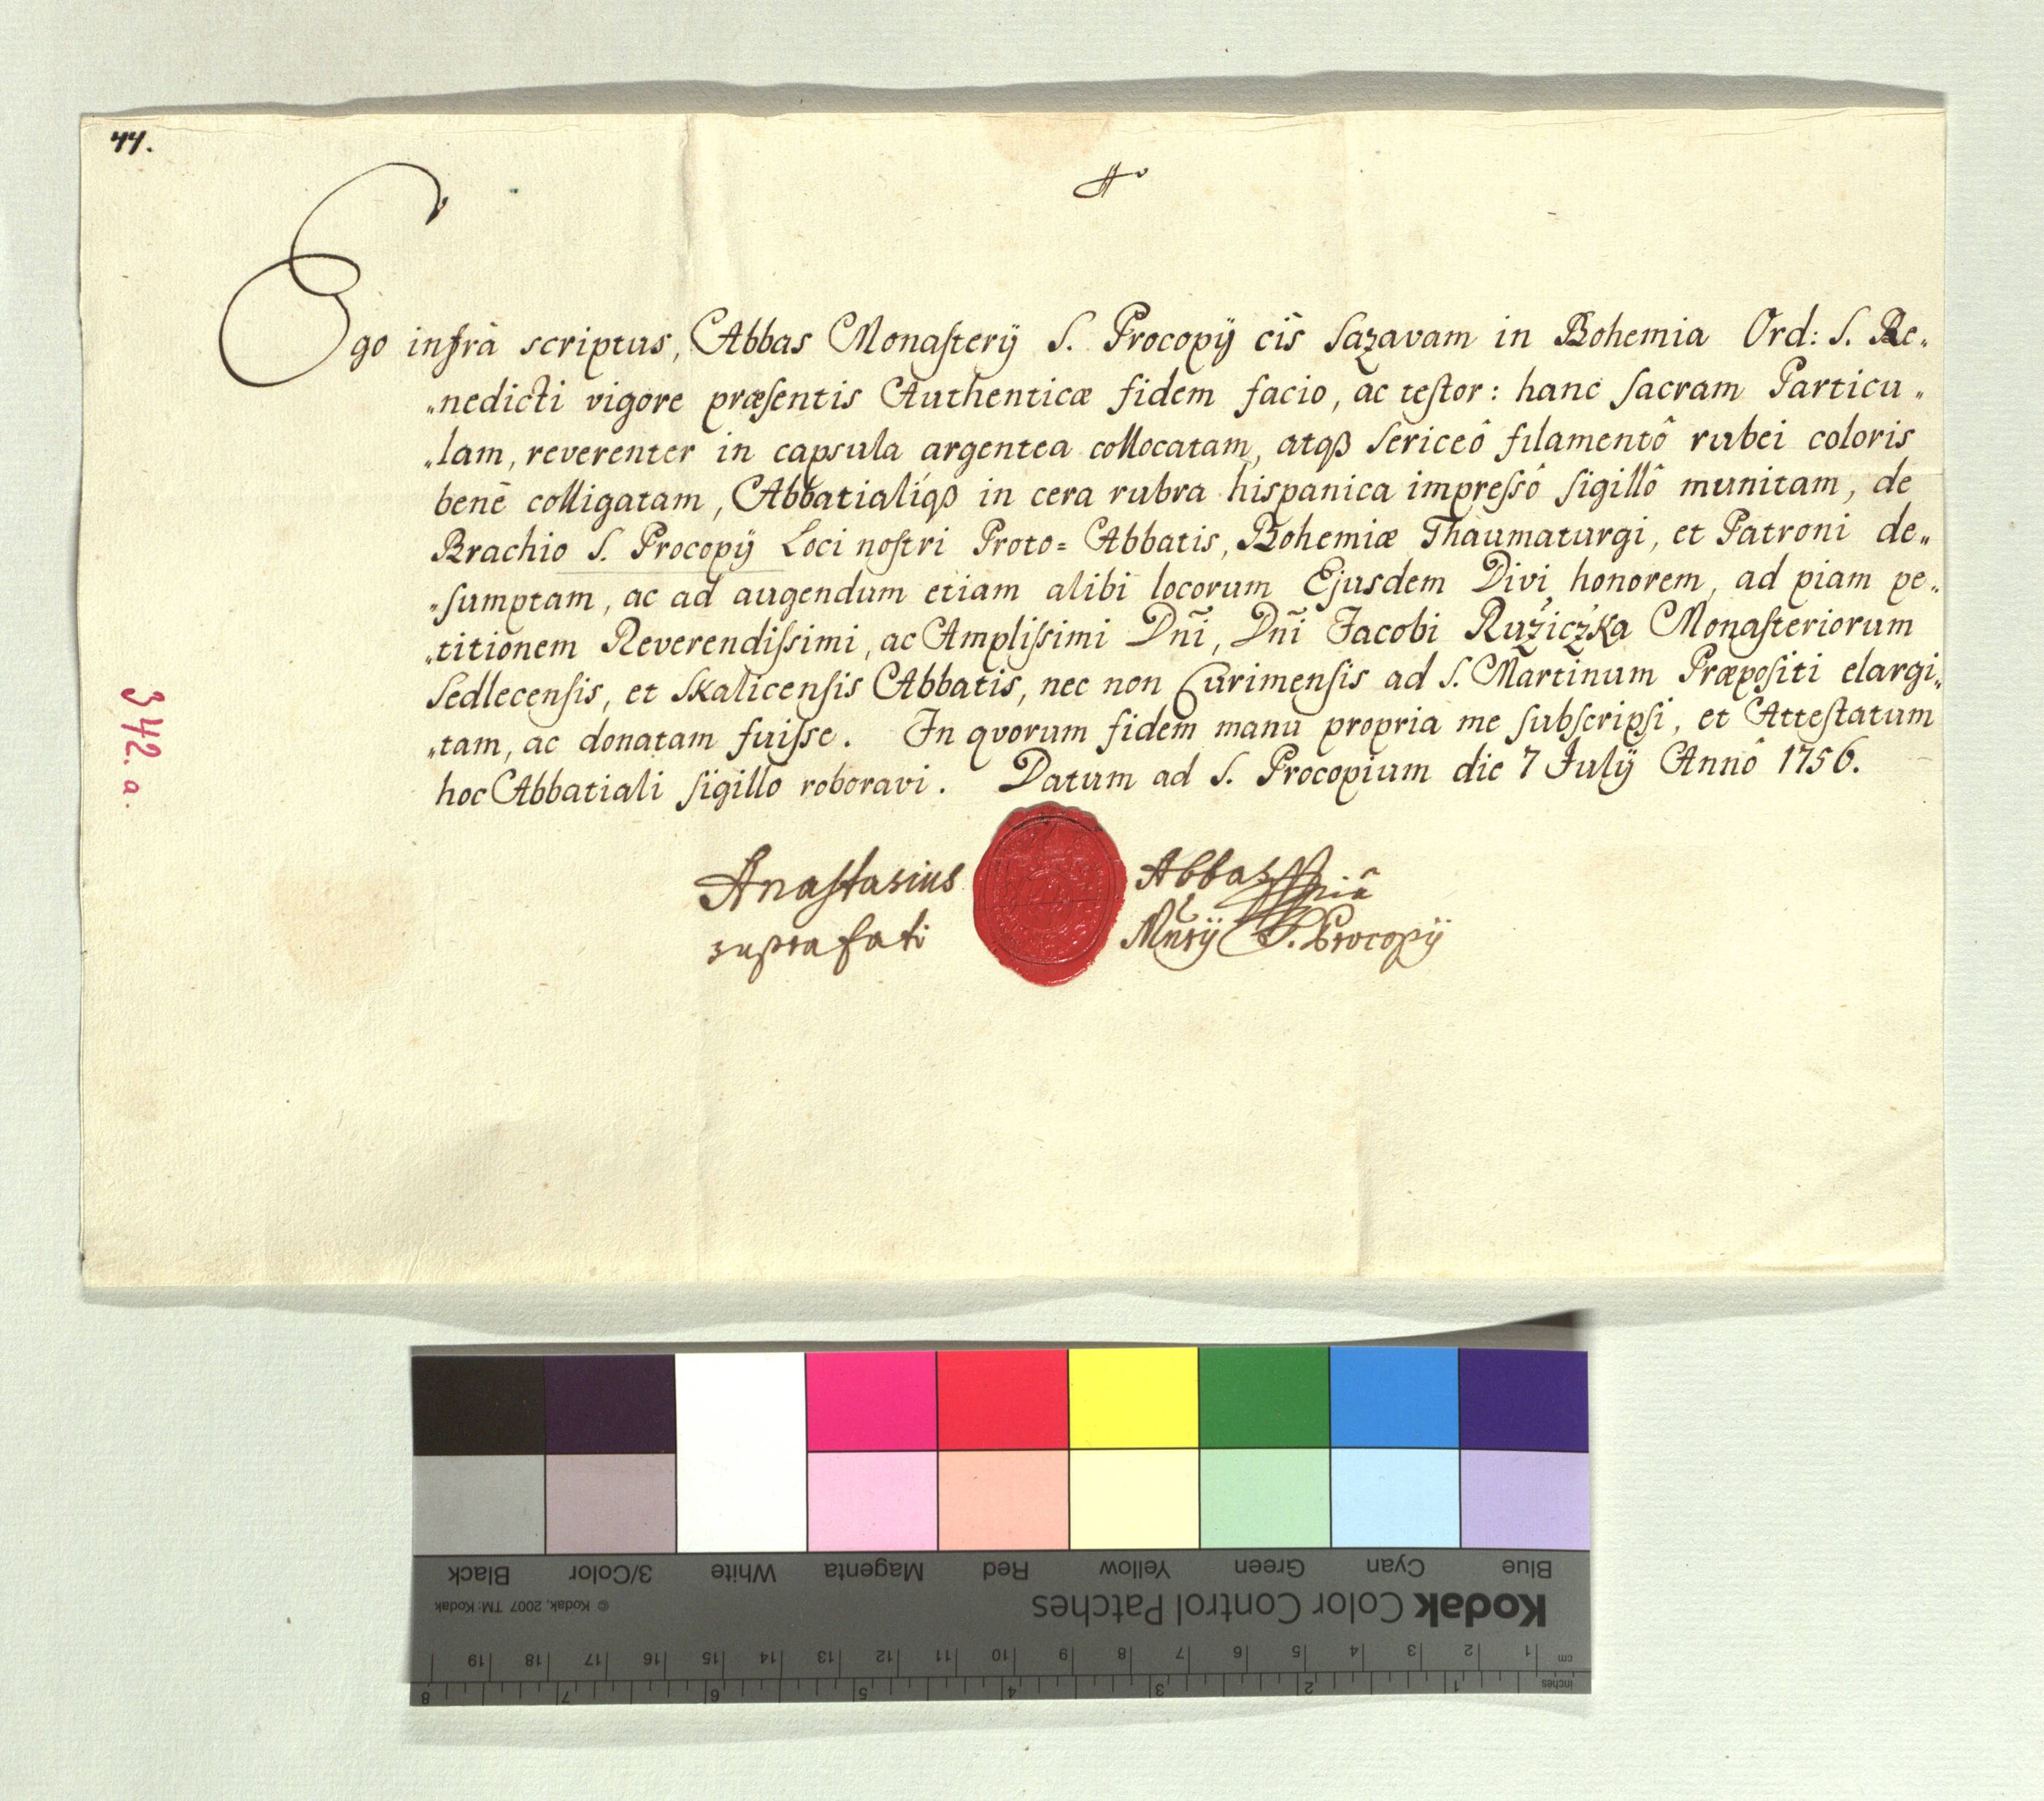 44.
Ego infrà scriptus, Abbas Monasterÿ S. Procopÿ cis Sazavam in Bohemia Ord: S. Be„
„nedicti vigore præsentis Authenticæ fidem facio, ac testor: hanc sacram Particu„
„lam, reverenter in capsula argentea collocatam, atqß sericeô filamentô rubei coloris
benè colligatam, Abbatialiqß in cera rubra hispanica impressô sigillô munitam, de
Brachio S. Procopÿ Loci nostri Proto= Abbatis, Bohemiæ Thaumaturgi, et Patroni de„
„sumptam, ac ad augendum etiam alibi locorum Ejusdem Divi honorem, ad piam pe„
„titionem Reverendissimi, ac Amplissimi Dñi, Dñi Jacobi Ružiczka Monasteriorum
Sedlecensis, et Skalicensis Abbatis, nec non Curimensis ad S. Martinum Præpositi elargi„
„tam, ac donatam fuisse. In qvorum fidem manu propria me subscripsi, et Attestatum
hoc Abbatiali sigillo roboravi. Datum ad S. Procopium die 7 Julÿ Annô 1756.
Anastasius Abbas
suprafati Mñrÿ S. Procopÿ
342. a.
Black 3/Color White Magenta Red Yellow Green Cyan Blue
© Kodak, 2007 TM: Kodak
Kodak Color Control Patches
cm 1 2 3 4 5 6 7 8 9 10 11 12 13 14 15 16 17 18 19
inches 1 2 3 4 5 6 7 8